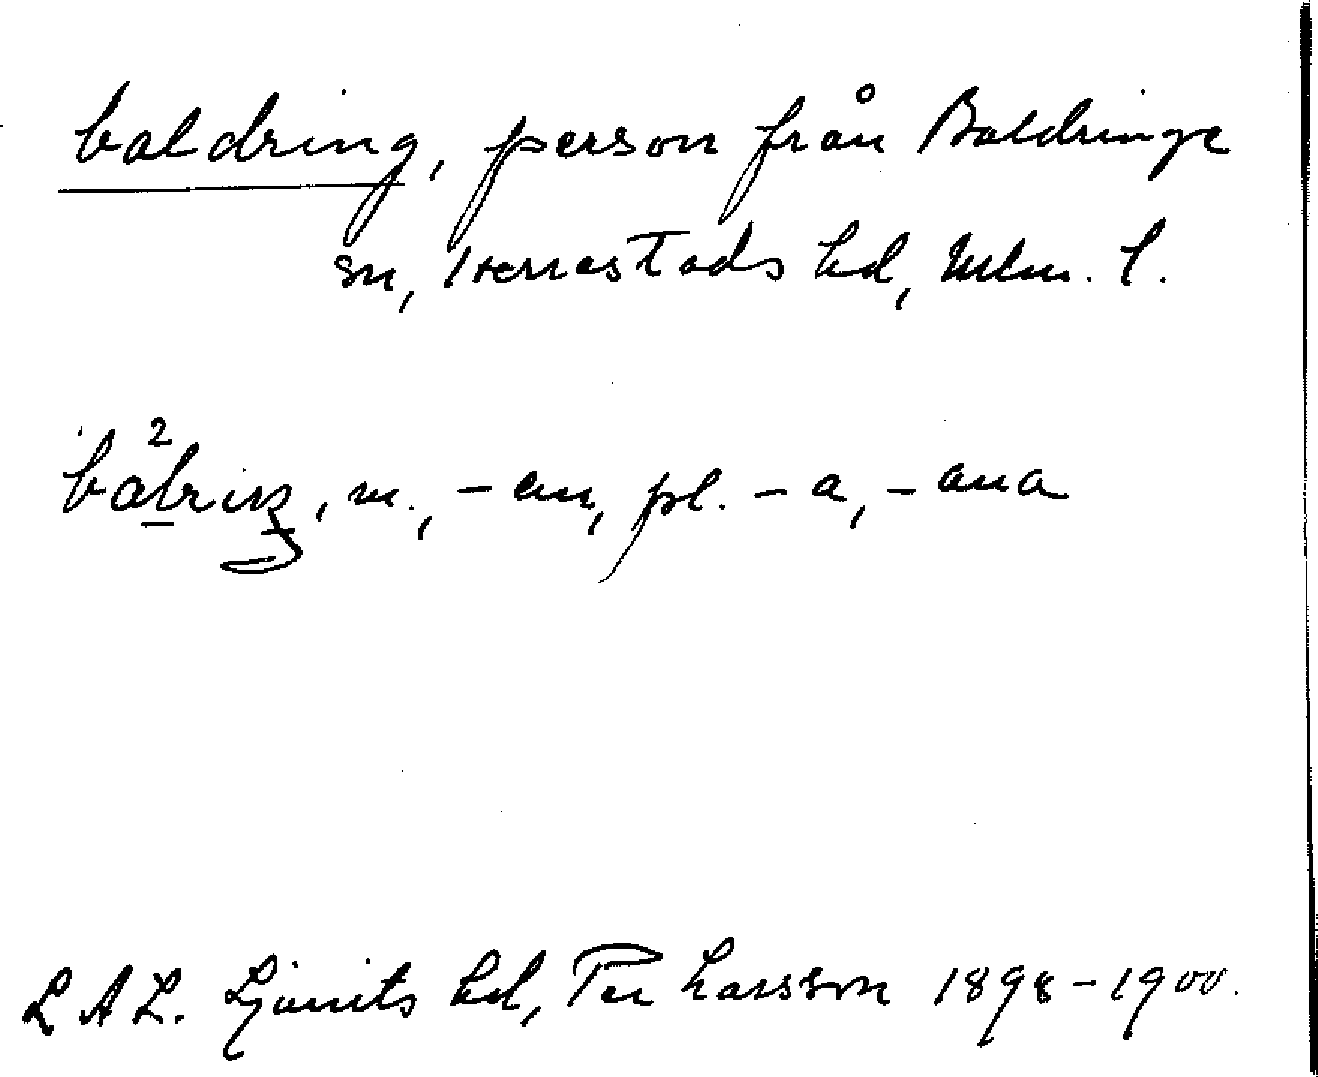 baldring, person från Baldringe
sn, Herrestads hd, Mlm. l.
bal²riŋ, m., -en, pl. -a, -ana
L A L. Ljunits hd, Per Larsson 1898-1900.